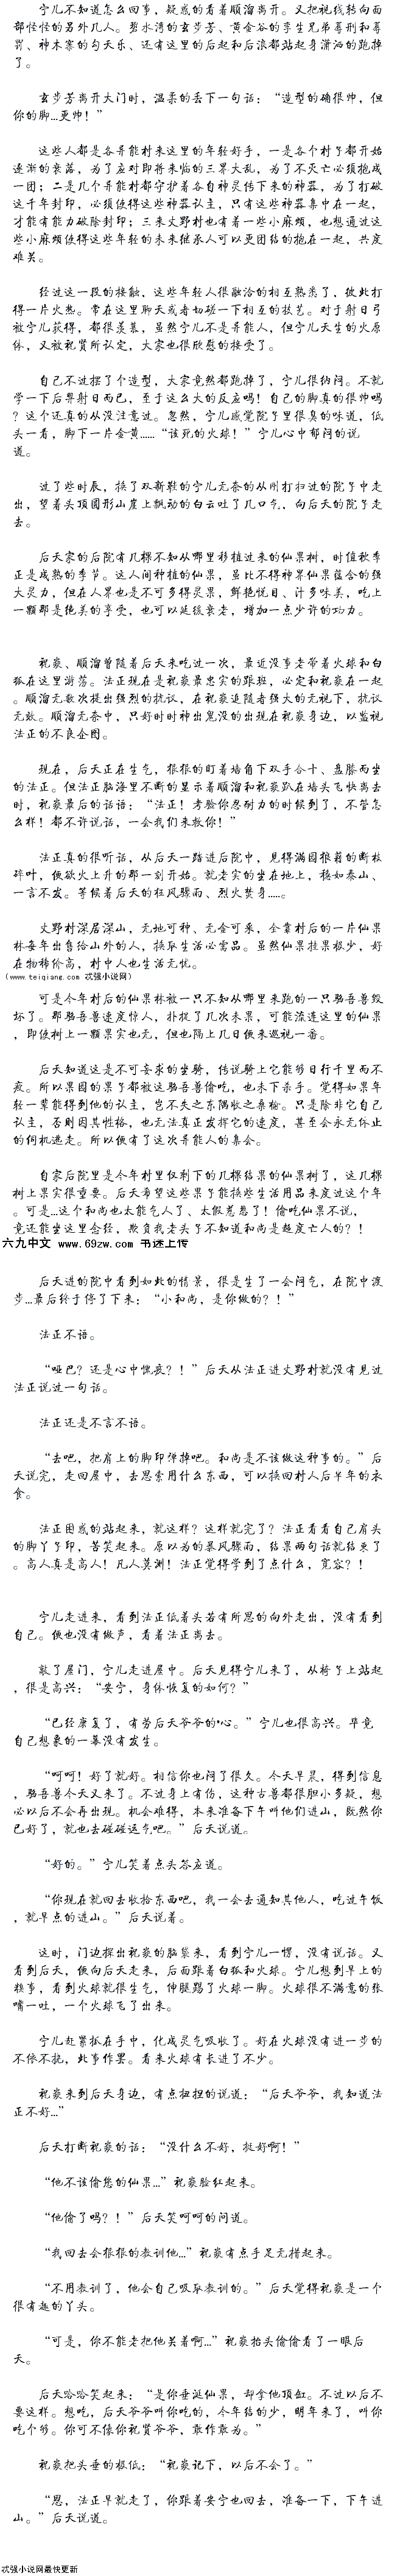 宁儿不知道怎么回事，疑惑的看着顺溜离开。又把视线转向面
部怪怪的另外几人。碧水湾的玄步芳、黄金谷的李生兄弟
、神木寨的勾天乐、还有这里的后起和后浪都站起身潇洒的跑掉
了。
玄步芳离开大门时，温柔的丢下一句话：“造型的确很帅，但
你的脚…更帅！”
这些人都是各异能村来这里的年轻好手，一是各个村子都开始
逐渐的衰落，为了应对即将来临的三界大乱，为了不灭亡必须抱成
一团；二是几个异能村都守护着各自神灵传下来的神器，为了打破
这千年封印，必须使得这些神器认主，只有这些神器集中在一起，
才能有能力破除封印；三来丈野村也有着一些小麻烦，也想通过这
些小麻烦使得这些年轻的未来继承人可以更团结的抱在一起，共度
难关。
经过这一段的接触，这些年轻人很融洽的相互熟类了，彼此打
得一片火热。常在这里聊天或者切磋一下相互的技艺。对于射日弓
被宁儿获得，都很羡慕，虽然宁儿不是异能人，但宁儿天生的火原
体，又被祝贤所认定，大家也很欣慰的接受了。
自己不过摆了个造型，大家竟然都跑掉了，宁儿很纳闷。不就
学一下后羿射日而已，至于这么大的反应吗！自己的脚真的很帅吗
？这个还真的从没注意过。忽然，宁儿感觉院子里很臭的味道，低
头一看，脚下一片金黄……“该死的火球！”宁儿心中郁闷的说
道。
过了些时辰，换了双新鞋的宁儿无奈的从刚打扫过的院子中走
出，望着头顶圆形山崖上飘动的白云吐了几口气，向后天的院子走
去。
后天家的后院有几棵不知从哪里移植过来的仙果树，时值秋季
正是成熟的季节。这人间种植的仙果，虽比不得神界仙果蕴含的强
大灵力，但在人界也是不可多得灵果，鲜艳悦目、汁多味美，吃上
一颗那是绝美的享受，也可以延缓衰老，增加一点少许的功力。
祝蓥、顺溜曾随着后天来吃过一次，最近没事老带着火球和白
狐在这里游荡。法正现在是祝蓥最忠实的跟班，必定和祝蓥在一起
。顺溜无数次提出强烈的抗议，在祝蓥追随者强大的无视下，抗议
无效。顺溜无奈中，只好时时神出鬼没的出现在祝蓥身边，以监视
法正的不良企图。
现在，后天正在生气，狠狠的盯着墙角下双手合十、盘膝而坐
的法正。但法正脑海里不断的显示着顺溜和祝蓥趴在墙头飞快离去
时，祝蓥最后的话语：“法正！考验你忍耐力的时候到了，不管怎
么样！都不许说话，一会我们来救你！”
法正真的很听话，从后天一踏进后院中，见得满园狼藉的断枝
碎叶，便欲火上升的那一刻开始。就老实的坐在地上，稳如泰山、
一言不发。等候着后天的狂风骤雨、烈火焚身……。
丈野村深居深山，无地可种、无禽可采，全靠村后的一片仙果
林每年出售给山外的人，换取生活必需品。虽然仙果挂果极少，好
在物稀价高，村中人也生活无忧。
（www.teiqiang.com 忒强小说网）
可是今年村后的仙果林被一只不知从哪里来跑的一只驺吾兽毁
坏了。那驺吾兽速度惊人，扑捉了几次未果，可能流连这里的仙果
，即使树上一颗果实也无，但也隔上几日便来巡视一番。
后天知道这是不可妄求的坐骑，传说骑上它能够日行千里而不
疲。所以果园的果子都被这驺吾兽偷吃，也未下杀手。觉得如果年
轻一辈能得到他的认主，岂不失之东隅收之桑榆。只是除非它自己
认主，否则因其性格，也无法真正发挥它的速度，甚至会永无休止
的伺机逃走。所以便有了这次异能人的集会。
自家后院里是今年村里仅剩下的几棵结果的仙果树了，这几棵
树上果实很重要。后天希望这些果子能换些生活用品来度过这个年
。可是…这个和尚也太能气人了、太假惹怒了！偷吃仙果不说，
竟还能坐这里念经，欺负我老头子不知道和尚是超度亡人的？！
六九中文 www.69zw.com 书迷上传
后天进的院中看到如此的情景，很是生了一会闷气，在院中渡
步…最后终于停了下来：“小和尚，是你做的？！”
法正不语。
“哑巴？还是心中愧疚？！”后天从法正进丈野村就没有见过
法正说过一句话。
法正还是不言不语。
“去吧，把肩上的脚印弹掉吧。和尚是不该做这种事的。”后
天说完，走回屋中，去思索用什么东西，可以换回村人后半年的衣
食。
法正困惑的站起来，就这样？这样就完了？法正看看自己肩头
的脚丫子印，苦笑起来。原以为的暴风骤雨，结果两句话就结束了
。高人真是高人！凡人莫测！法正觉得学到了点什么，宽容？！
宁儿走进来，看到法正低着头若有所思的向外走出，没有看到
自己。便也没有做声，看着法正离去。
敲了屋门，宁儿走进屋中。后天见得宁儿来了，从椅子上站起
，很是高兴：“安宁，身体恢复的如何？”
“已经康复了，有劳后天爷爷的心。”宁儿也很高兴。毕竟
自己想象的一幕没有发生。
“呵呵！好了就好。相信你也闷了很久。今天早晨，得到信息
，驺吾兽今天又来了。不过身上有伤，这种古兽都很胆小多疑，想
必以后不会再出现。机会难得，本来准备下午叫他们进山，既然你
已好了，就也去碰碰运气吧。”后天说道。
“好的。”宁儿笑着点头答应道。
“你现在就回去收拾东西吧，我一会去通知其他人，吃过午饭
，就早点的进山。”后天说着。
这时，门边探出祝蓥的脑袋来，看到宁儿一愣，没有说话。又
看到后天，便向后天走来，后面跟着白狐和火球。宁儿想到早上的
糗事，看到火球就很生气，伸腿踢了火球一脚。火球很不满意的张
嘴一吐，一个火球飞了出来。
宁儿赶紧抓在手中，化成灵气吸收了。好在火球没有进一步的
不依不挠，此事作罢。看来火球有长进了不少。
祝蓥来到后天身边，有点扭捏的说道：“后天爷爷，我知道法
正不好…”
后天打断祝蓥的话：“没什么不好，挺好啊！”
“他不该偷您的仙果…”祝蓥脸红起来。
“他偷了吗？！”后天笑呵呵的问道。
“我回去会狠狠的教训他…”祝蓥有点手足无措起来。
“不用教训了，他会自己吸取教训的。”后天觉得祝蓥是一个
很有趣的丫头。
“可是，你不能老把他关着啊…”祝蓥抬头偷偷看了一眼后
天。
后天哈哈笑起来：“是你垂涎仙果，却拿他顶缸。不过以后不
要这样。想吃，后天爷爷叫你吃的，今年结的少，明年来了，叫你
吃个够。你可不像你祝贤爷爷，敢作敢为。”
祝蓥把头垂的极低：“祝蓥记下，以后不会了。”
“恩，法正早就走了，你跟着安宁也回去，准备一下，下午进
山。”后天说道。
忒强小说网最快更新